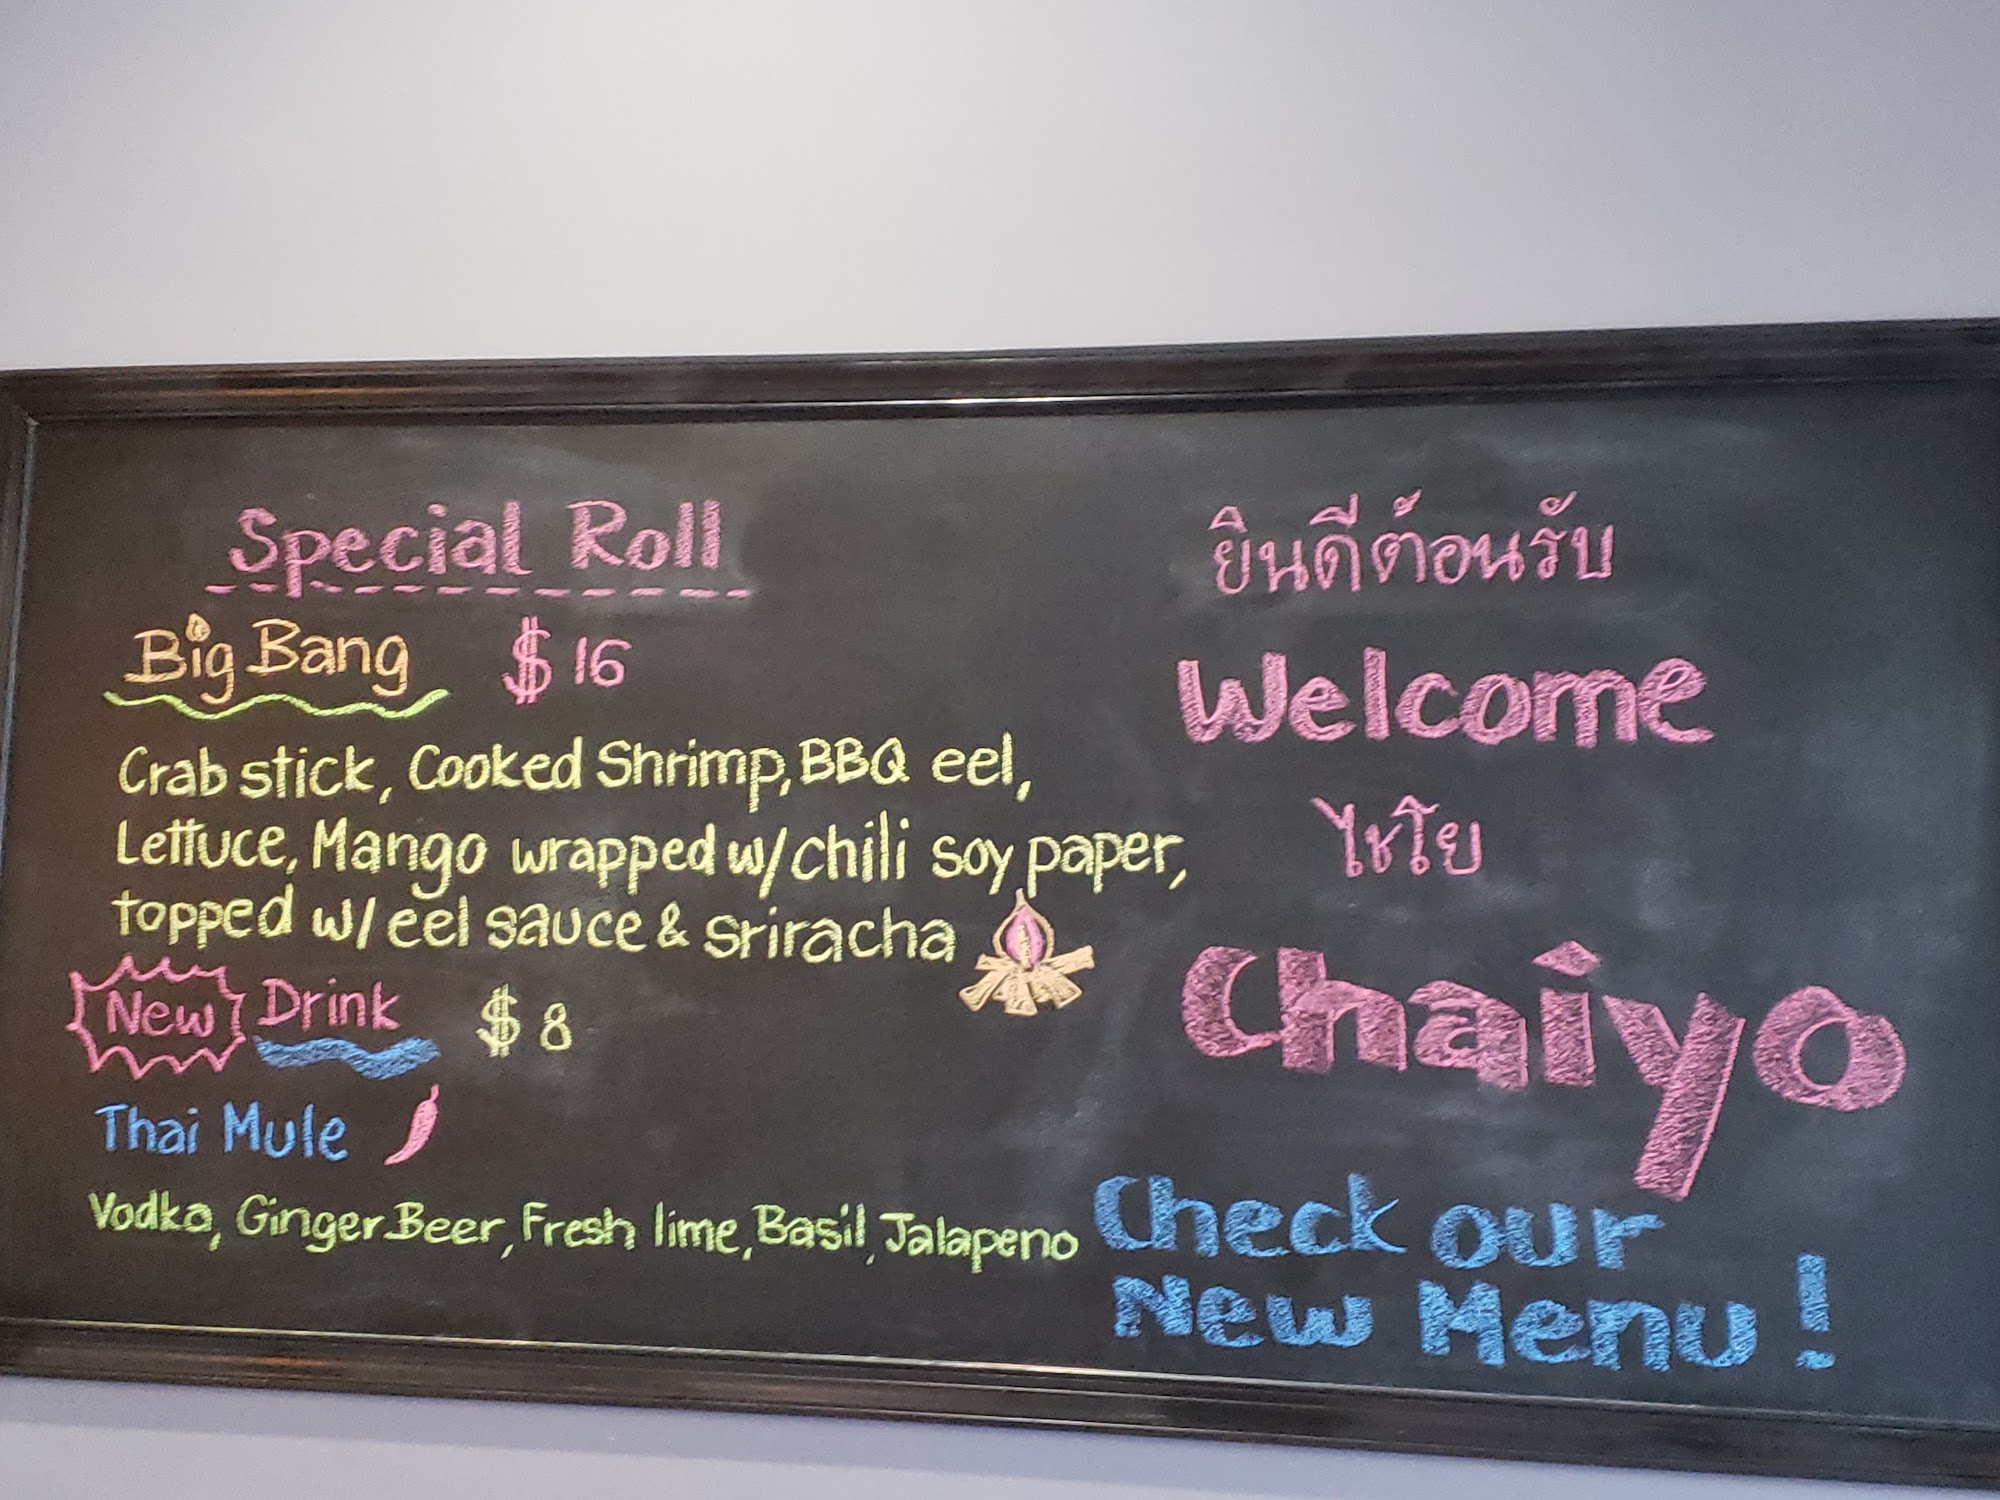 Special Roll
Big Bang $16
Crab stick, Cooked Shrimp, BBQ eel,
Lettuce, Mango wrapped w/chili soy paper,
topped w/ eel sauce & sriracha
New Drink $8
Thai Mule
Vodka, Ginger Beer, Fresh lime, Basil, Jalapeno
ยินดีต้อนรับ
Welcome
ไชโย
Chaiyo
Check our
New Menu!